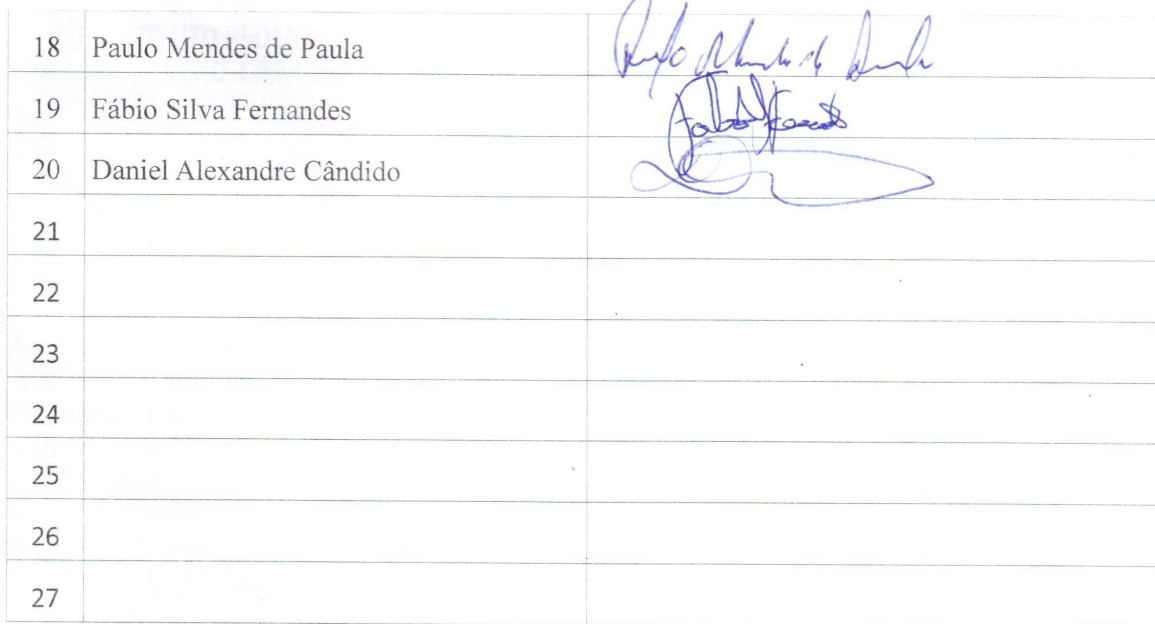 18 Paulo Mendes de Paula
19 Fábio Silva Fernandes
20 Daniel Alexandre Cândido
21
22
23
24
25
26
27